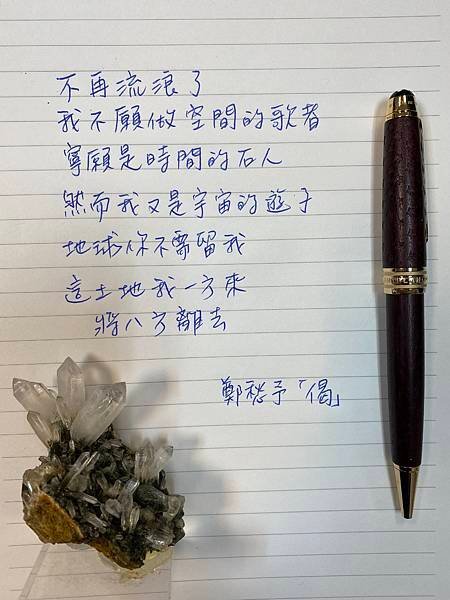 不再流浪了
我不願做空間的歌者
寧願是時間的石人
然而我又是宇宙的遊子
地球你不需留我
這土地我一方來
將八方離去
鄭愁予「偈」